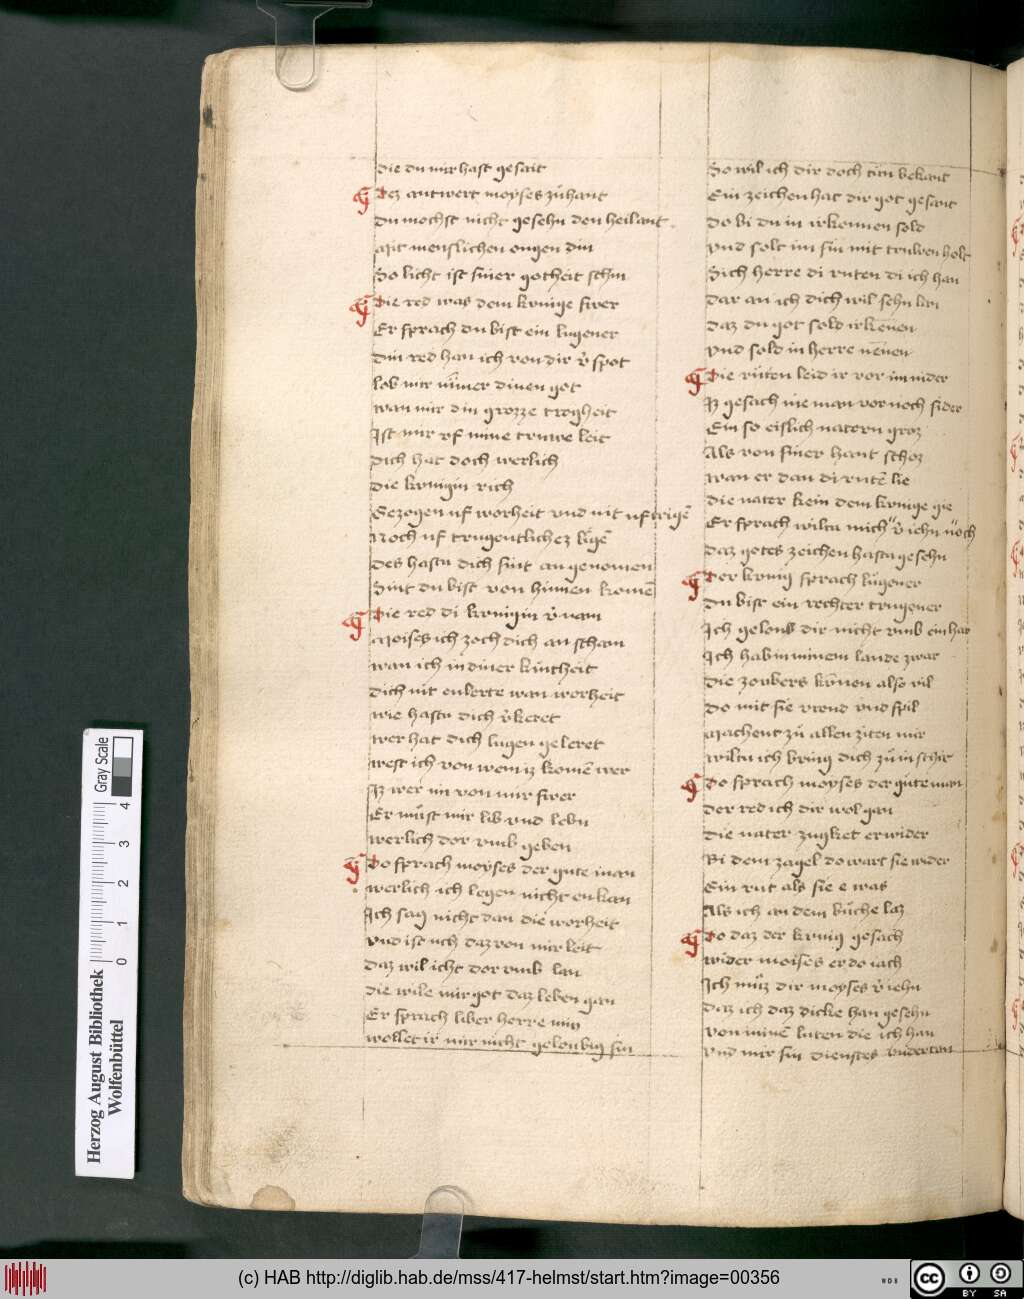 die du mir hast gesait
Dez antwert moyses zůhant
Du mochst nicht gesehn den heilant
Mit menslichen ougen din
So licht ist siner gotheit schin
Die red was dem kunige swer
Er sprach du bist ein lugener
din red han ich von dir v̓ spot
lob mir nimer dinen got
wan mir din grozze trogheit
Ist mir vf mine truwe leit
dich hat doch werlich
die kunigin rich
Gezogen uf worheit vnd nit uf trigē
Noch uf trugentlichez ligē
des hastu dich sint an genomen
Sint du bist von hinnen komē
Die red di kunigin v̓nam
Moises ich zoch dich an scham
wan ich in diner kintheit
dich nit enlerte wan worheit
wie hastu dich v̓keret
wer hat dich lugen geleret
west ich von wem iz komē wer
Iz wer im von mir swer
Er můst mir lib vnd lebn
werlich dor vmb geben
Do sprach moyses der gute man
werlich ich legen nicht enkan
Ich sag nicht dan die worheit
vnd ist uch daz von mir leit
daz wil icht dor vmb lan
die wile mir got daz leben gan
Er sprach liber herre min
wollet ir mir nicht geloubig sin
So wil ich dir doch tun bekant
Ein zeichen hat dir got gesant
do bi du in irkennen sold
vnd solt im sin mit truwen holt
Sich herre di ruten di ich han
dar an ich dich wil sehn lan
daz du got sold irkēnen
vnd sold in herre nēnen
Die růten leid ir vor im nider
Iz gesach nie man vor noch sider
Ein so eislich natern groz
Als von siner hant schoz
wan er dan di rutē lie
die nater kein dem kunige gie
Er sprach wiltu mich v̓iehn noch
daz gotes zeichen hastu gesehn
Der kunig sprach lůgener
du bist ein rechter trugener
Ich geloub dir nicht vmb ein har
Ich hab in minem lande zwar
die zoubers kūnen also vil
do mit sie vreud vnd spil
Machent zů allen ziten mir
wiltu ich bring dich zů in schir
Do sprach moyses der gůte man
der red ich dir wol gan
die nater zugket er wider
Bi dem zagel do wart sie wider
Ein rut als sie e was
Als ich an dem bůche laz
Do daz der kunig gesach
wider moises er do iach
Ich můz dir moyses v̓iehn
daz ich daz dicke han gesehn
von minē luten die ich han
vnd mir sin dienstes vndertan
Gray Scale
0 1 2 3 4
Herzog August Bibliothek
Wolfenbüttel
(c) HAB http://diglib.hab.de/mss/417-helmst/start.htm?image=00356
WDB
cc BY SA